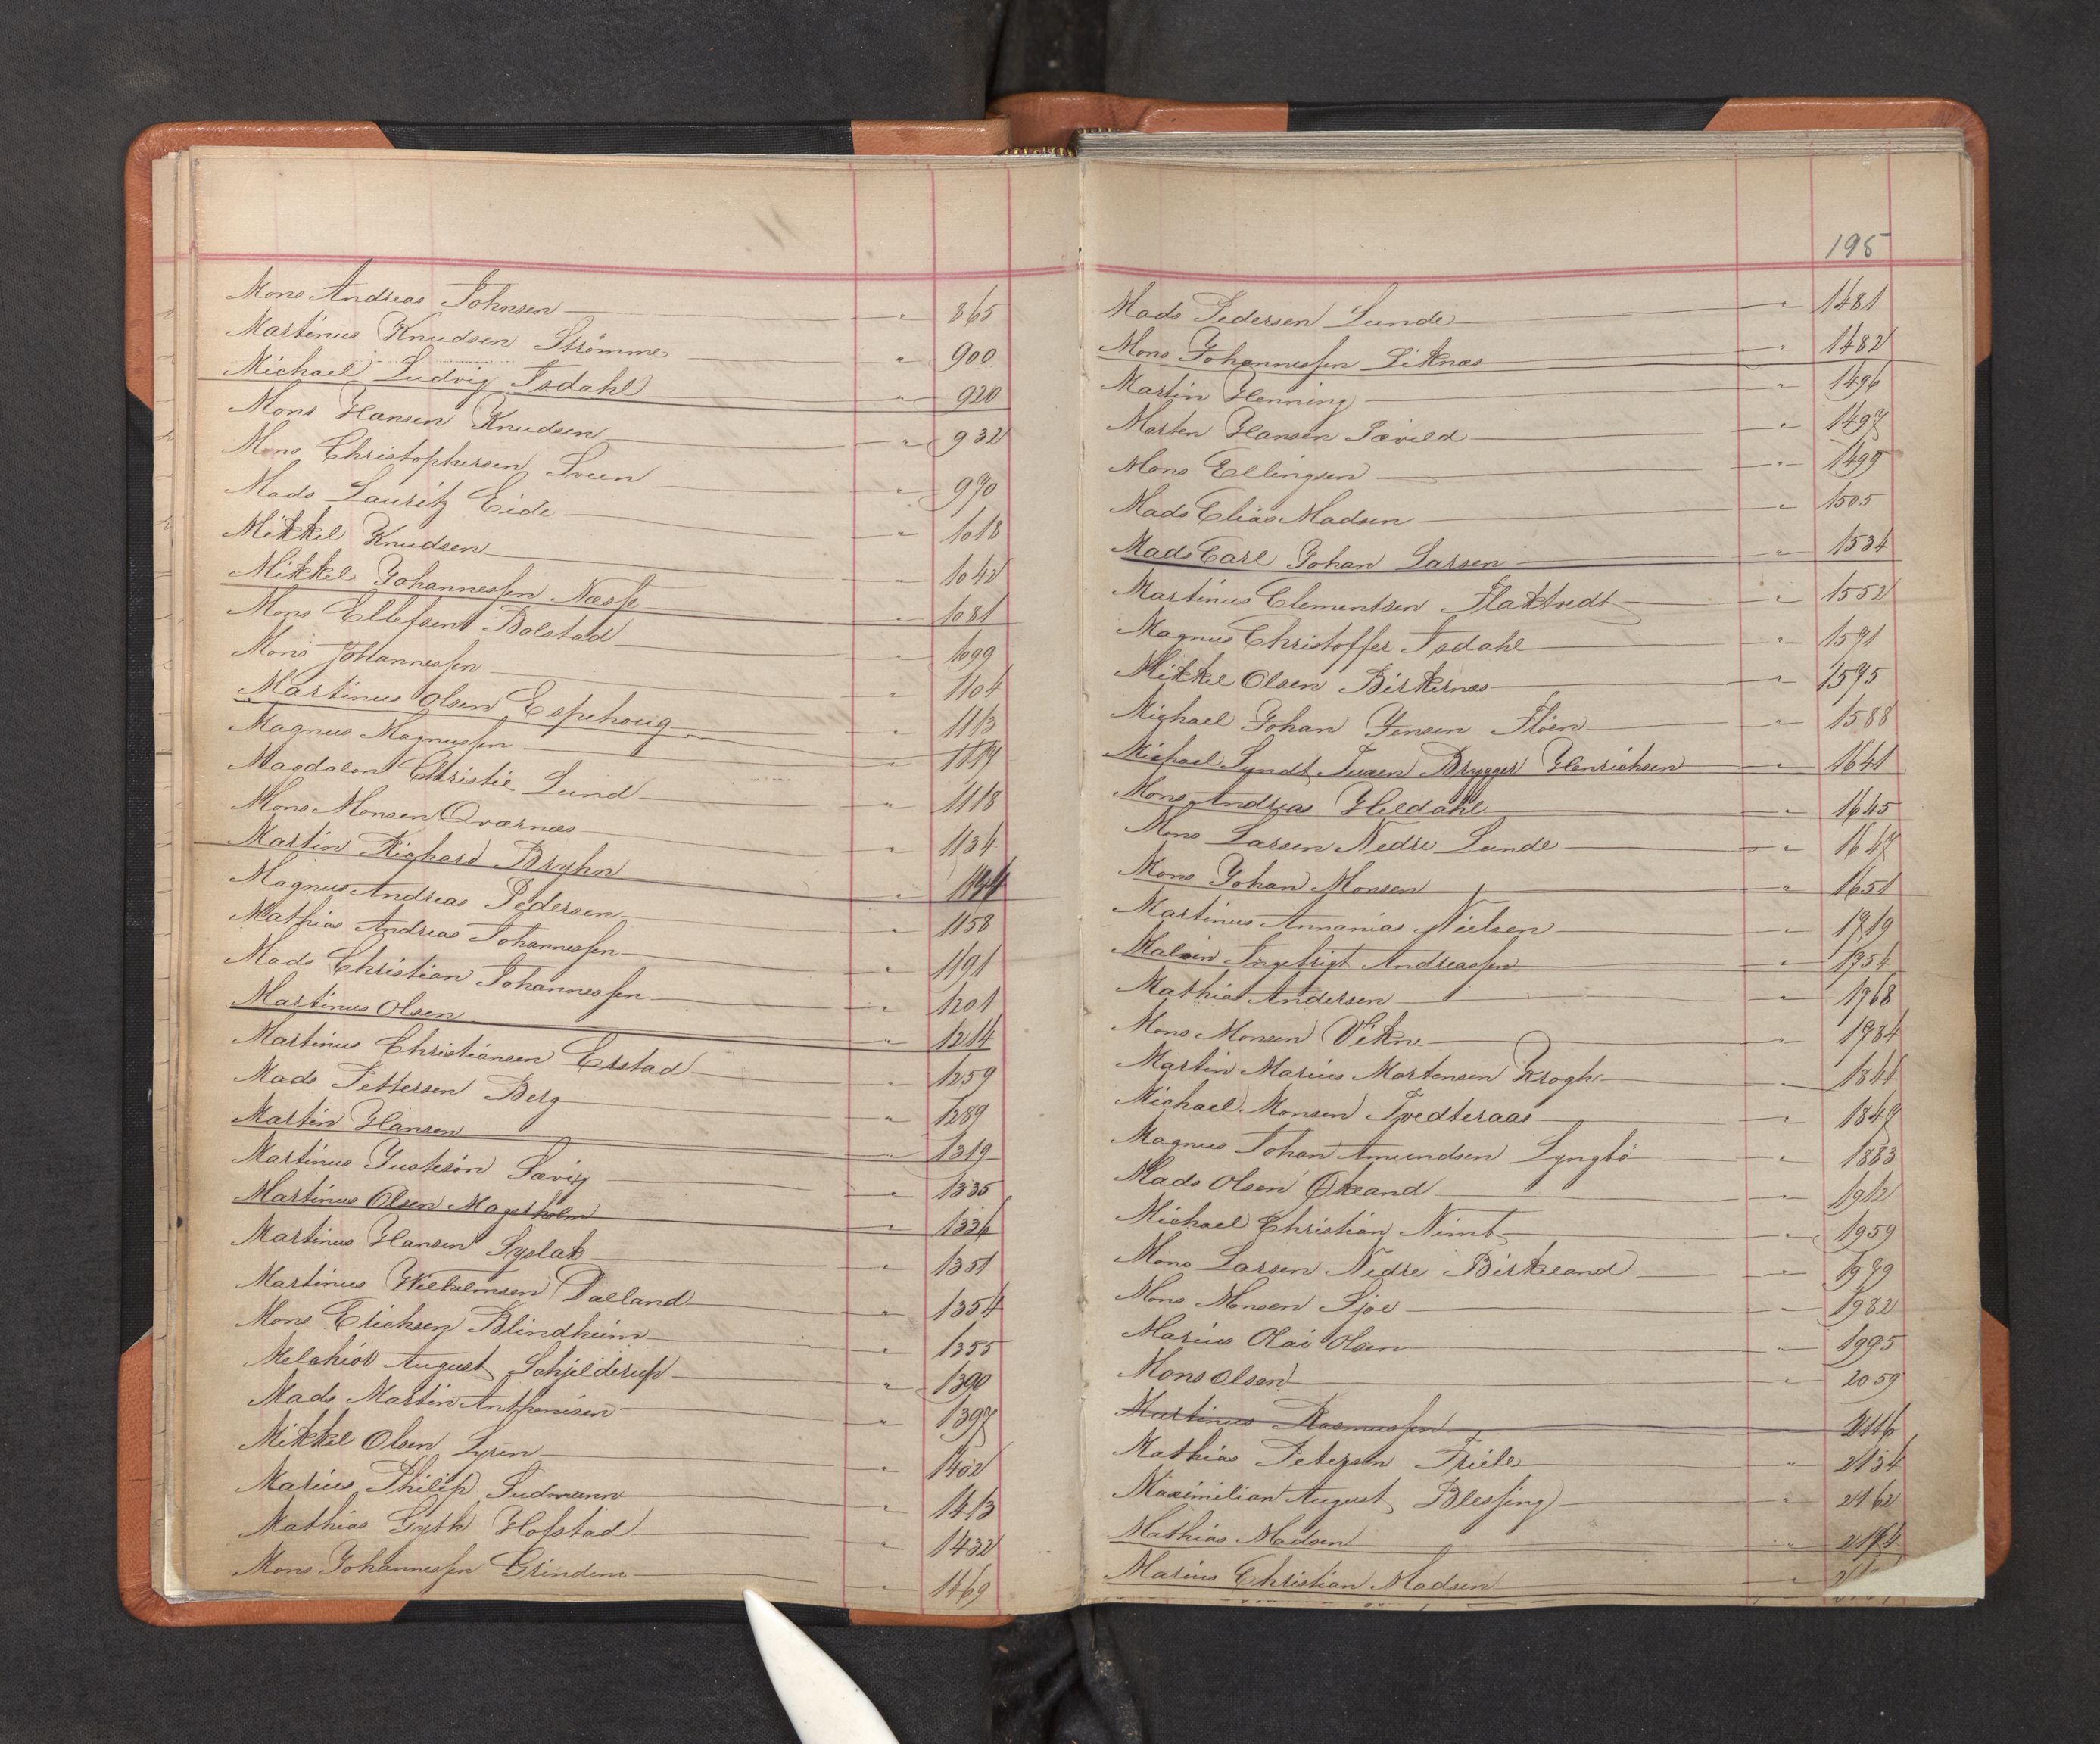 Mons Andreas Johnsen — " — 865
Martinus Knudsen Strømme — " — 900
Michael Ludvig Isdahl — " — 920
Mons Hansen Knudsen — " — 932
Mons Christophersen Sveen — " — 970
Mads Lauritz Eide — " — 1018
Mikkel Knudsen — " — 1042
Mikkel Johannessen Næsse — " — 1081
Mons Ellefsen Bolstad — " — 1099
Mons Johannessen — " — 1104
Martinus Olsen Espehoug — " — 1113
Magnus Magnussen — " — 1114
Magdalon Christie Lund — " — 1118
Mons Monsen Qvarnæs — " — 1134
Martin Richard Bryhn — " — 1144
Magnus Andreas Pedersen — " — 1158
Mathias Andreas Johannessen — " — 1191
Mads Christian Johannessen — " — 1201
Martinus Olsen — " — 1214
Martinus Christiansen Erstad — " — 1259
Mads Pettersen Berg — " — 1289
Martin Hansen — " — 1319
Martinus Justesøn Søvig — " — 1335
Martinus Olsen Magerholm — " — 1336
Martinus Hansen Syslak — " — 1351
Martinus Wilhelmsen Dalland — " — 1354
Mons Erichsen Blindheim — " — 1355
Melchior August Schjelderup — " — 1390
Mads Martin Anthonisen — " — 1397
Mikkel Olsen Lyren — " — 1402
Marius Philip Sudmann — " — 1413
Mathias Gyth Hofstad — " — 1432
Mons Johannessen Grindem — " — 1469
195
Mads Pedersen Lunde — " — 1481
Mons Johannessen Liknæs — " — 1482
Martin Henning — " — 1496
Morten Hansen — " — 1497
Mons Ellingsen — " — 1499
Mads Elias Madsen — " — 1505
Mads Carl Johan Larsen — " — 1534
Martinus Clementsen Flaktvedt — " — 1552
Magnus Christoffer Isdahl — " — 1591
Mikkel Olsen Birkenæs — " — 1595
Michael Johan Jensen Floen — " — 1588
Michael Lyndt Tuxen Brygger Henrichsen — " — 1641
Mons Andreas Hildahl — " — 1645
Mons Larsen Nedre Lunde — " — 1647
Mons Johan Monsen — " — 1651
Martinus Annanias Nielsen — " — 1719
Malvin Ingebrigt Andreassen — " — 1754
Mathias Andersen — " — 1768
Mons Monsen Vikne — " — 1784
Martin Marius Mortensen Krogh — " — 1844
Michael Monsen Tvedteraas — " — 1847
Magnus Johan Amundsen Lyngbö — " — 1883
Mads Olsen Økland — " — 1912
Michael Christian Nimt — " — 1959
Mons Larsen Nedre Birkeland — " — 1979
Mons Monsen Sjoe — " — 1982
Marius Olai Olsen — " — 1995
Mons Olsen — " — 2059
Martinus Rasmussen — 2116
Mathias Petersen Friele — " — 2134
Maximilian August Blessing — " — 2162
Mathias Madsen — " — 2174
Marius Christian Madsen — "